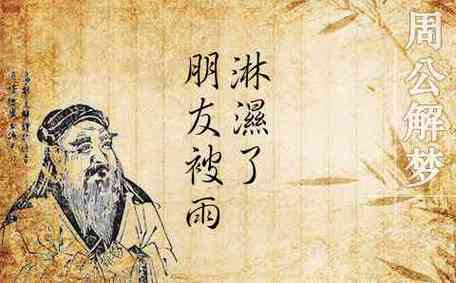 周公解梦
朋友被雨
淋濕了